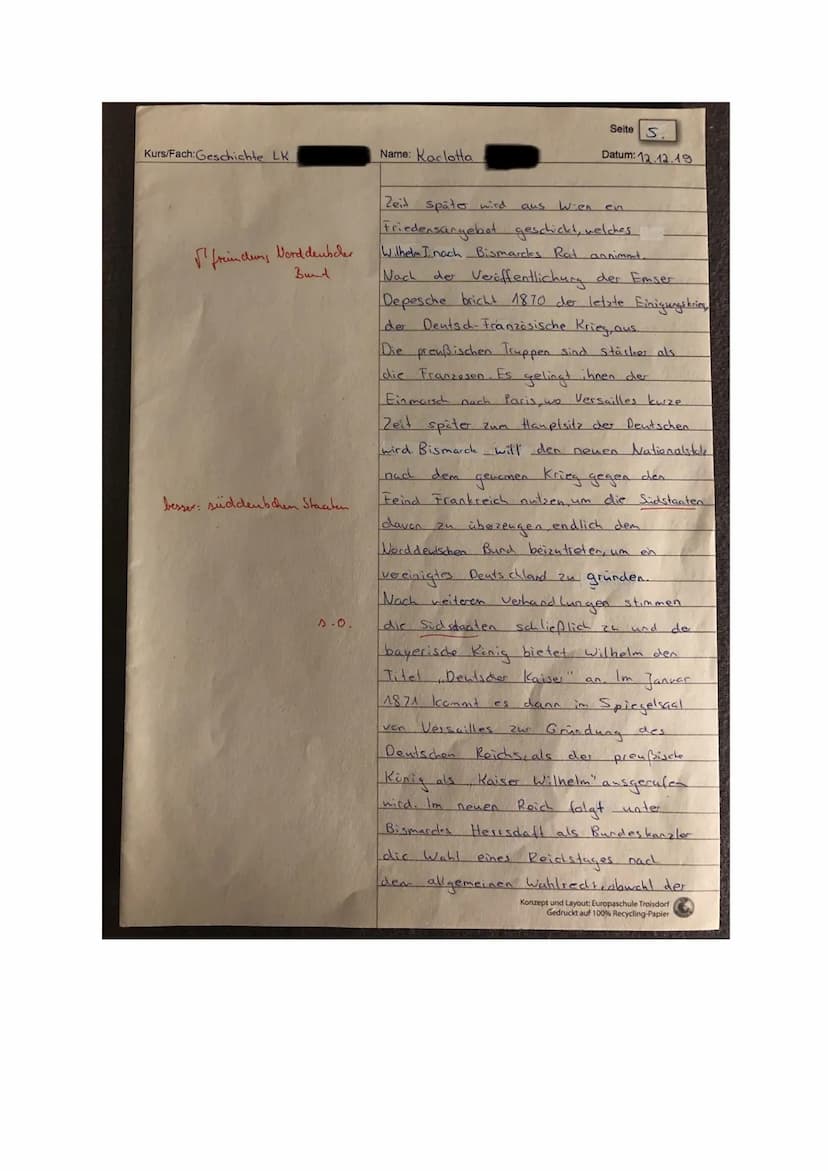 Seite 5.
Kurs/Fach: Geschichte LK
Name: Karlotta
Datum: 12.12.19
Zeit später wird aus Wien ein
Friedensangebot geschickt, welches
Wilhelm I. nach Bismarcks Rat annimmt.
Gründung Norddeutscher
Bund
Nach der Veröffentlichung der Emser
Depesche bricht 1870 der letzte Einigungskrieg,
der Deutsch-Französische Krieg, aus.
Die preußischen Truppen sind stärker als
die Franzosen. Es gelingt ihnen der
Einmarsch nach Paris, wo Versailles kurze
Zeit später zum Hauptsitz der Deutschen
wird. Bismarck will den neuen
nach dem Krieg gegen den
Feind Frankreich nutzen, um die Südstaaten
besser: süddeutschen Staaten
davon zu überzeugen, endlich dem
Norddeutschen Bund beizutreten, um ein
vereinigtes Deutschland zu gründen.
Nach weiteren Verhandlungen stimmen
die Südstaaten schließlich zu und der
s.o.
bayerische König bietet Wilhelm den
Titel „Deutscher Kaiser" an. Im Januar
1871 kommt es dann im Spiegelsaal
von Versailles zur Gründung des
Deutschen Reichs, als der preußische
König als „Kaiser Wilhelm" ausgerufen
wird. Im neuen Reich folgt unter
Bismarcks Herrschaft als Bundeskanzler
die Wahl eines Reichstages nach
den allgemeinen Wahlrecht, obwohl der
Konzept und Layout: Europaschule Troisdorf
Gedruckt auf 100% Recycling-Papier